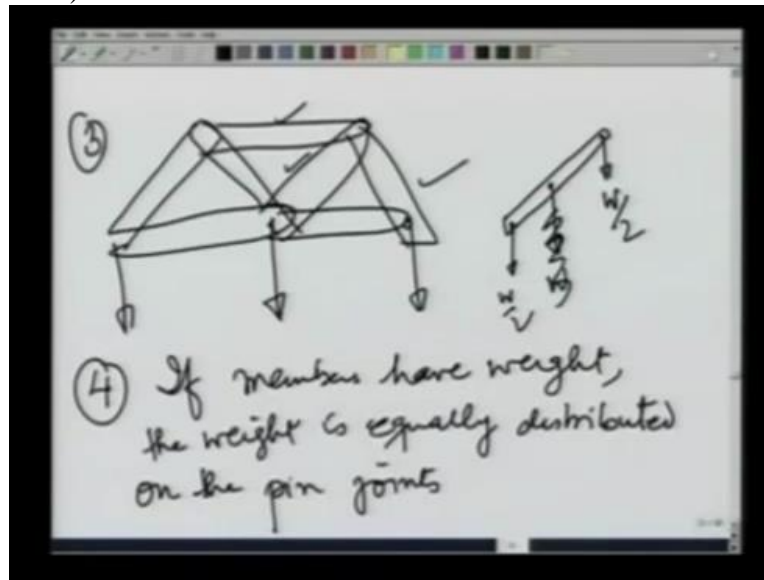 ③
W/2
W
W/2
④ If members have weight,
the weight is equally distributed
on the pin joints